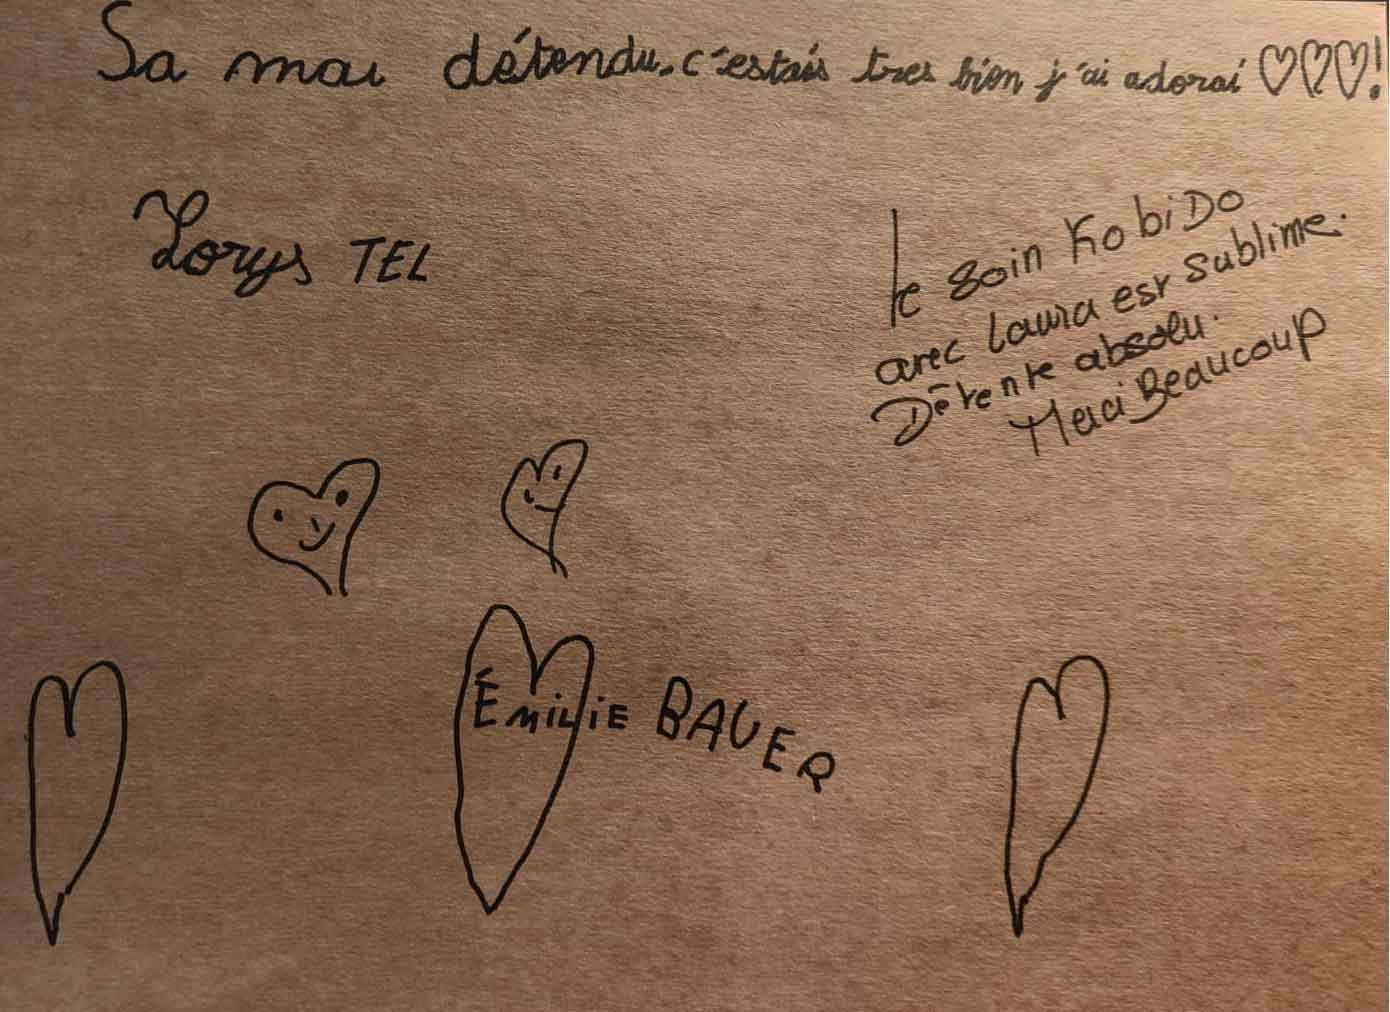 Sa mai détendu. c'estais tres bien j'ai adorai ♡♡♡!
Lorys TEL
le soin KobiDo
avec Laura est sublime.
Détente absolu.
Merci Beaucoup
Émilie BAUER